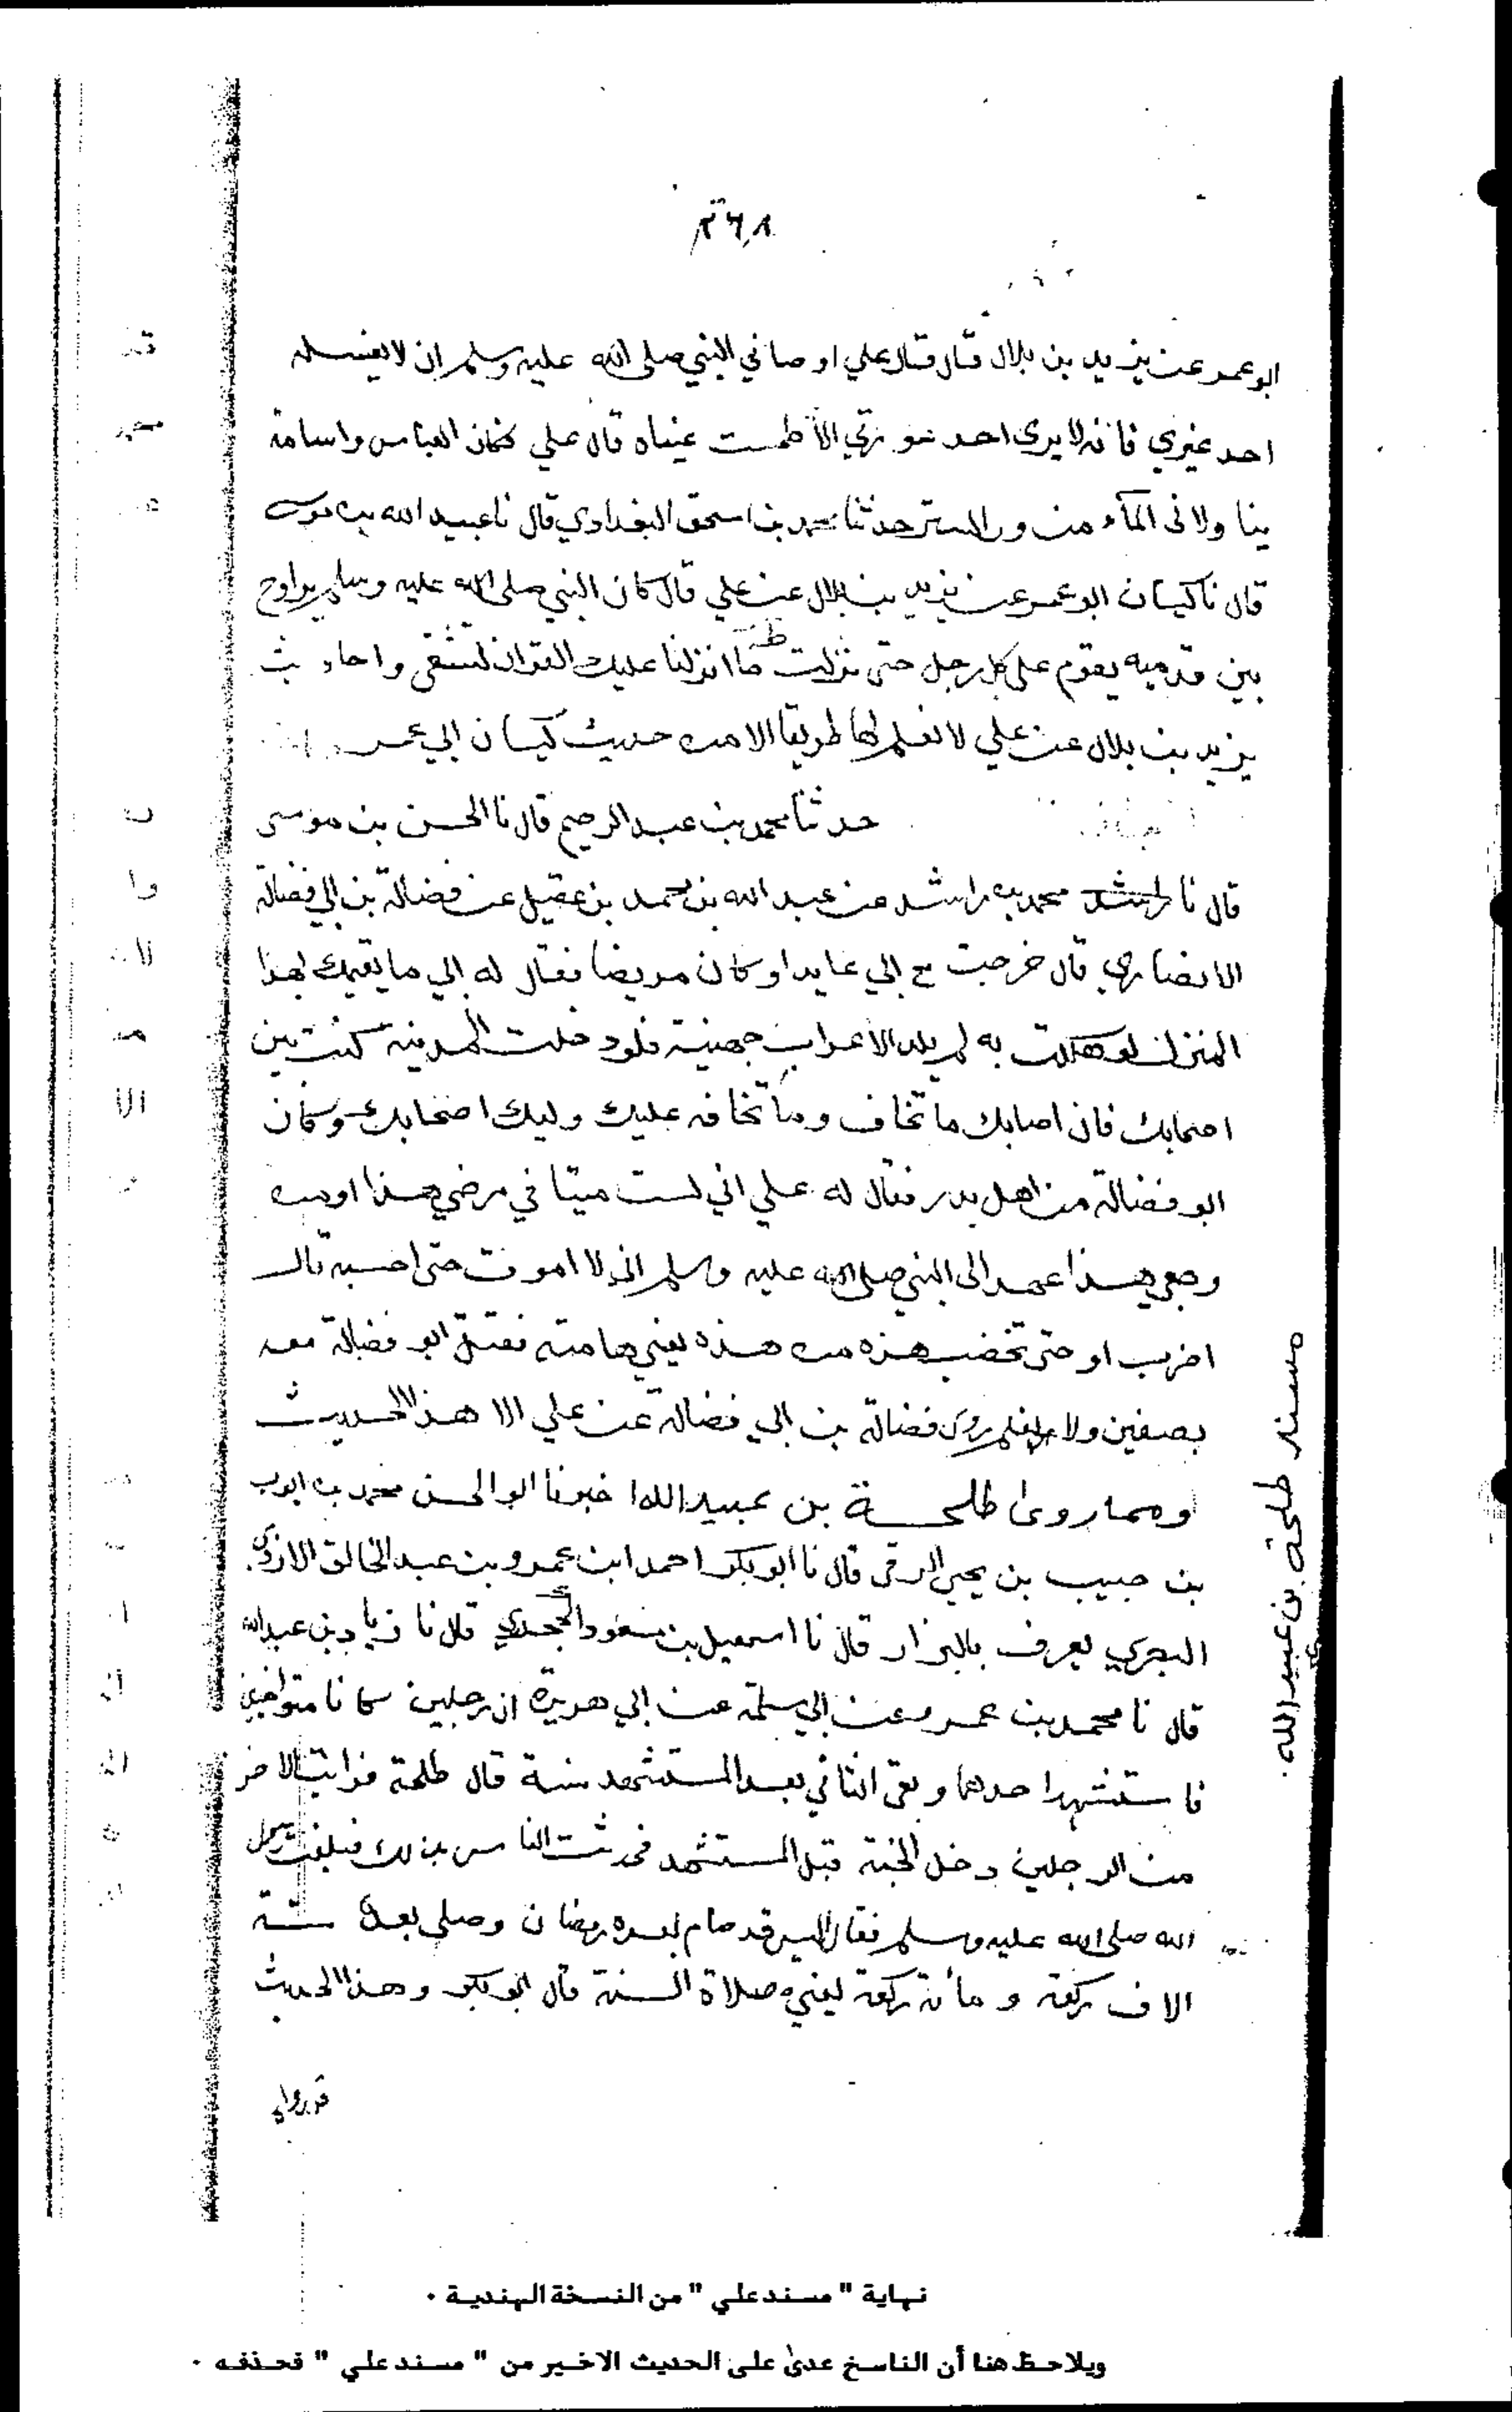 ٢٦٨
ابو عمر عن يزيد بن بلال قال قال علي اوصاني النبي صلى الله عليه وسلم ان لا يغسله
احد غيري فانه لا يرى احد عورتي الا طمست عيناه قال علي فكان العباس واسامة
ينا ولاني المآء من ورا الستر حدثنا محمد بن اسحق البغدادي قال نا عبيد الله بن موسى
قال نا كيسان ابو عمر عن يزيد بن بلال عن علي قال كان النبي صلى الله عليه وسلم يراوح
بين قدميه يقوم على كل رجل حتى نزلت ما انزلنا عليك القران لتشقى واحاديث
يزيد بن بلال عن علي لا نعلم لها طريقا الا من حديث كيسان ابي عمر
حدثنا محمد بن عبد الرحيم قال نا الحسن بن موسى
قال نا محمد بن راشد عن عبد الله بن محمد بن عقيل عن فضالة بن ابي فضالة
الانصاري قال خرجت مع ابي عايدا وكان مريضا فقال له ابي ما يقيمك بهذا
المنزل لو هلكت به لم يلك الا اعراب جهينة فلو دخلت المدينة كنت بين
اصحابك فان اصابك ما تخاف وما تخافه عليك وليك اصحابك وكان
ابو فضالة من اهل بدر فقال له علي اني لست ميتا في مرضي هذا او من
وجعي هذا عهد الى النبي صلى الله عليه وسلم اني لا اموت حتى احسبه قال
اضرب او حتى تخضب هذه من هذه يعني هامته فقتل ابو فضالة معه
بصفين ولا نعلم روى فضالة بن ابي فضالة عن علي الا هذا الحديث
ومما روى طلحة بن عبيد الله اخبرنا ابو الحسن محمد بن ايوب
بن حبيب بن يحيى الرقى قال نا ابو بكر احمد ابن عمرو بن عبد الخالق الازدي
البصري يعرف بالبزار قال نا اسمعيل بن مسعود الجحدري قال نا زياد بن عبد الله
قال نا محمد بن عمرو عن ابي سلمة عن ابي هريرة ان رجلين كانا متواخيين
فاستشهد احدهما وبقى الثاني بعد المستشهد سنة قال طلحة فرايت الاخر
من الرجلين دخل الجنة قبل المستشهد فحدثت الناس بذلك فبلغت رسول
الله صلى الله عليه وسلم فقال اليس قد صام بعده رمضان وصلى بعده ستة
الاف ركعة ومائة ركعة يعني صلاة السنة قال ابو بكر وهذا الحديث
قد رواه
مسند طلحة بن عبيد الله.
نهاية " مسند علي " من النسخة الهندية .
ويلاحظ هنا أن الناسخ عدىٰ على الحديث الاخير من " مسند علي " فحذفه .